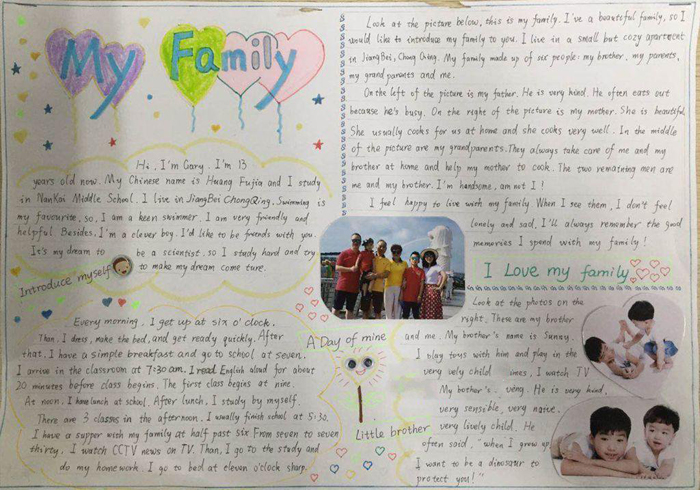 My Family
Hi, I'm Gary. I'm 13
years old now. My Chinese name is Huang Fujia and I study
in NanKai Middle School. I live in JiangBei ChongQing. Swimming is
my favourite, so, I am a keen swimmer. I am very friendly and
helpful. Besides, I'm a clever boy. I'd like to be friends with you.
It's my dream to be a scientist. so I study hard and try
to make my dream come ture.
Introduce myself
Every morning, I get up at six o'clock.
Than. I dress, make the bed, and get ready quickly. After
that. I have a simple breakfast and go to school at seven.
I arrive in the classroom at 7:30 am. I read English aloud for about
20 minutes before class begins. The first class begins at nine.
At noon. I have lunch at school. After lunch, I study by myself.
There are 3 classes in the afternoon. I usually finish school at 5:30.
I have a supper with my family at half past six From seven to seven
thirty, I watch CCTV news on TV. Than, I go to the study and
do my homework. I go to bed at eleven o'clock sharp.
A Day of mine
Look at the picture below, this is my family. I've a beautiful family, so I
would like to introduce my family to you. I live in a small but cozy apartment
in JiangBei, Chong Qing. My family made up of six people: my brother, my parents,
my grandparents and me.
On the left of the picture is my father. He is very kind. He often eats out
because he's busy. On the right of the picture is my mother. She is beautiful.
She usually cooks for us at home and she cooks very well. In the middle
of the picture are my grandparents. They always take care of me and my
brother at home and help my mother to cook. The two remaining men are
me and my brother. I'm handsome, am not I!
I feel happy to live with my family When I see them, I don't feel
lonely and sad. I'll always remember the good
memories I spend with my family!
I Love my family
Look at the photos on the
right, There are my brother
and me. My brother's name is Sunny.
I play toys with him and play in the
very child ines, I watch TV
My bother's. very. He is very kind,
very sensible, very naive.
very lively child. He
often said, "when I grew up
I want to be a dinosaur to
protect you!"
Little brother